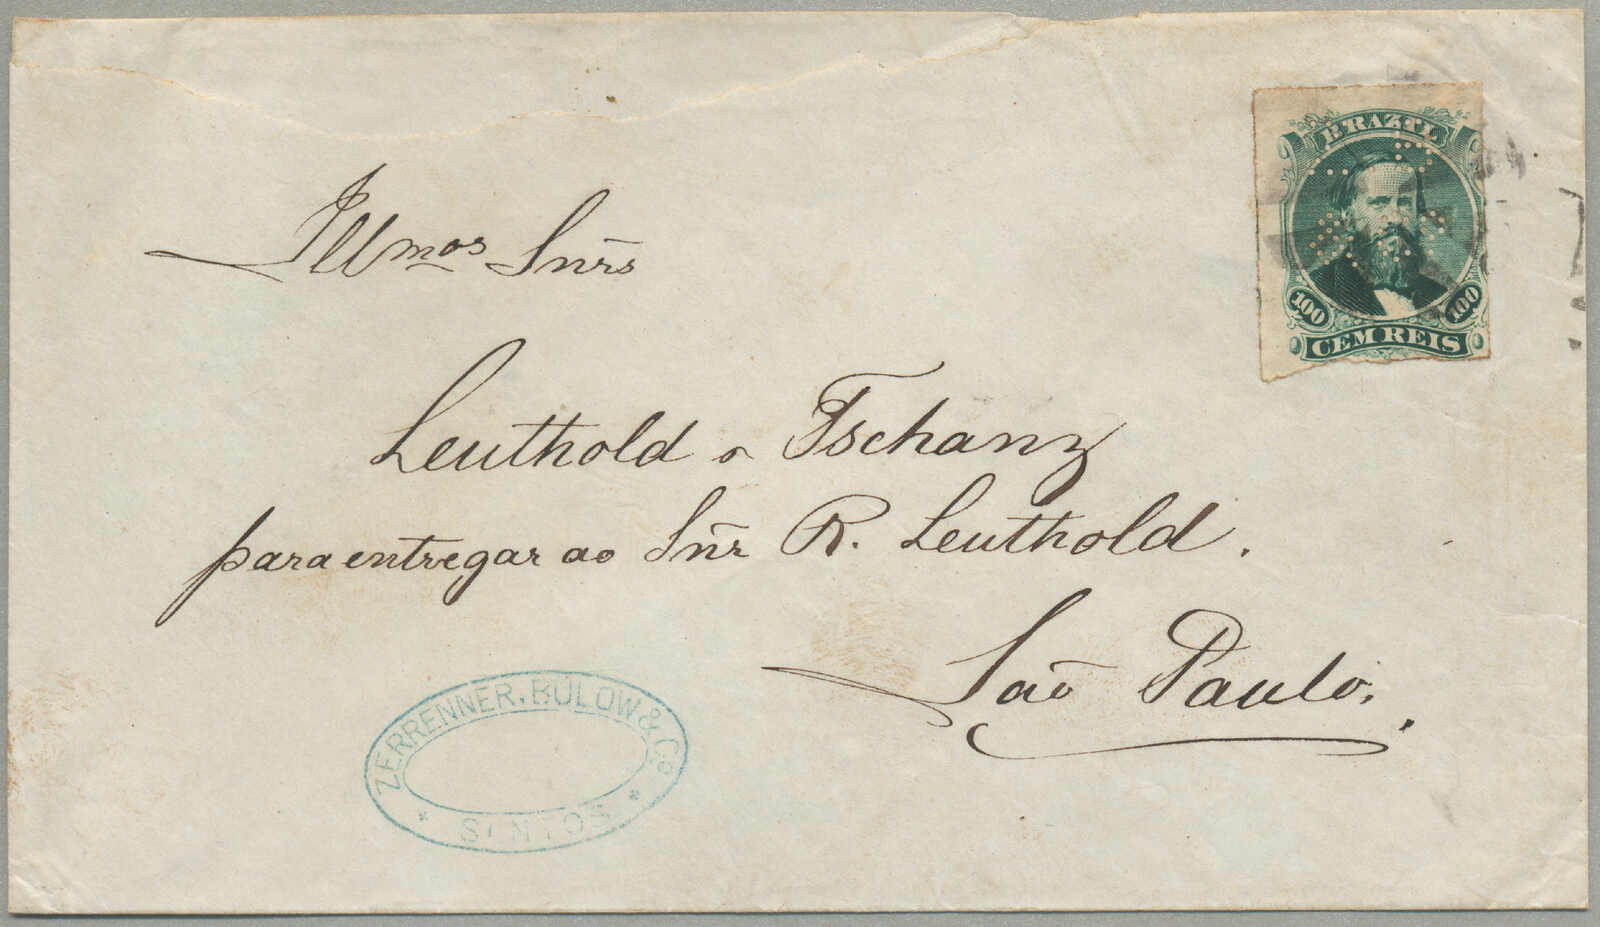 BRAZIL
100 100
CEM REIS
Illmos Snrs
Leuthold & Tschanz
para entregar ao Snr R. Leuthold.
São Paulo.
ZERRENNER, BÜLOW & Co
* SANTOS *